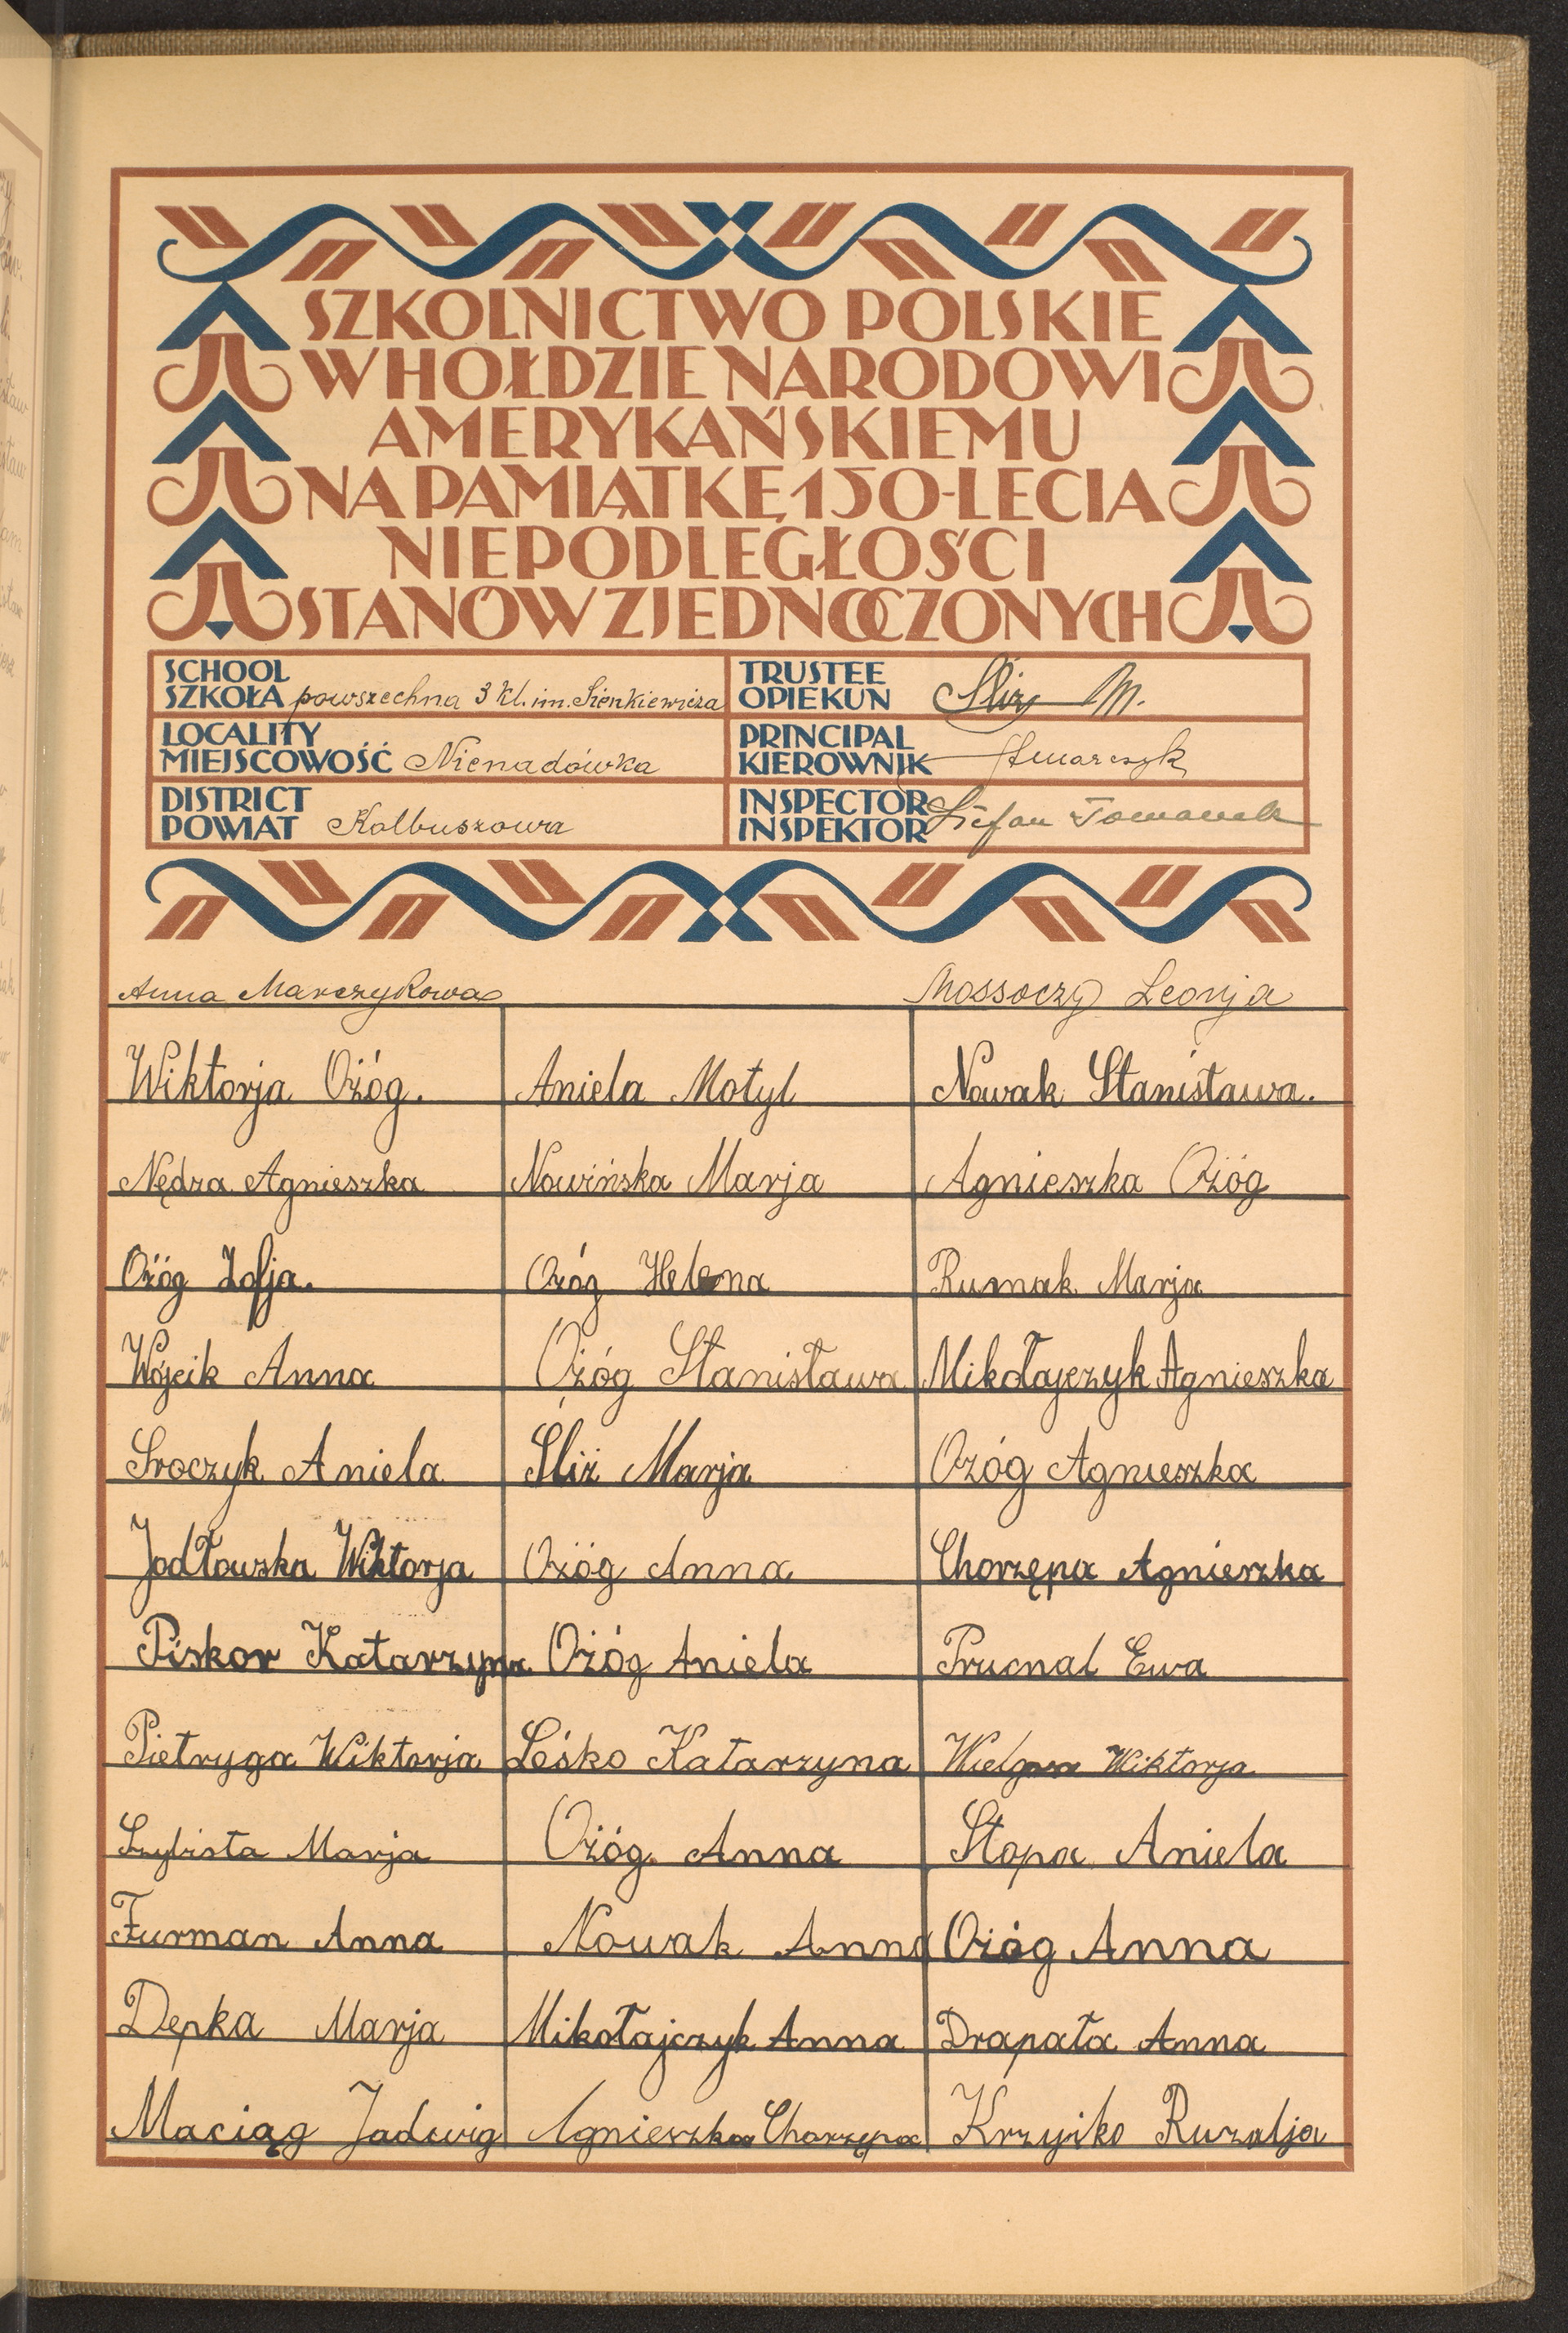 SZKOLNICTWO POLSKIE
W HOŁDZIE NARODOWI
AMERYKAŃSKIEMU
NA PAMIĄTKĘ 150-LECIA
NIEPODLEGŁOŚCI
STANÓW ZJEDNOCZONYCH
SCHOOL
SZKOŁA powszechna 3 kl. im. Sienkiewicza
TRUSTEE
OPIEKUN Śliż M.
LOCALITY
MIEJSCOWOŚĆ Nienadówka
PRINCIPAL
KIEROWNIK
DISTRICT
POWIAT Kolbuszowa
INSPECTOR
INSPEKTOR Stefan Tomanek
Anna Marczykowa Mossoczy Leonja
Wiktorja Ożóg. Aniela Motyl Nowak Stanisława.
Nędza Agnieszka Nowińska Marja Agnieszka Ożóg
Ożóg Zofja. Ozóg Helena Rumak Marja
Wójcik Anna Ożóg Stanisława Mikołajczyk Agnieszka
Sroczyk Aniela Śliż Marja Ozóg Agnieszka
Jodłowska Wiktorja Ożóg Anna Chorzępa Agnieszka
Piskor Katarzyna Ożóg Aniela Prucnal Ewa
Pietryga Wiktorja Leśko Katarzyna Wiktorja
Szylista Marja Ożóg Anna Stopa Aniela
Furman Anna Nowak Anna Ożóg Anna
Depka Marja Mikołajczyk Anna Drapała Anna
Maciąg Jadwig Agnieszka Chorzępa Krzyśko Ruzalja